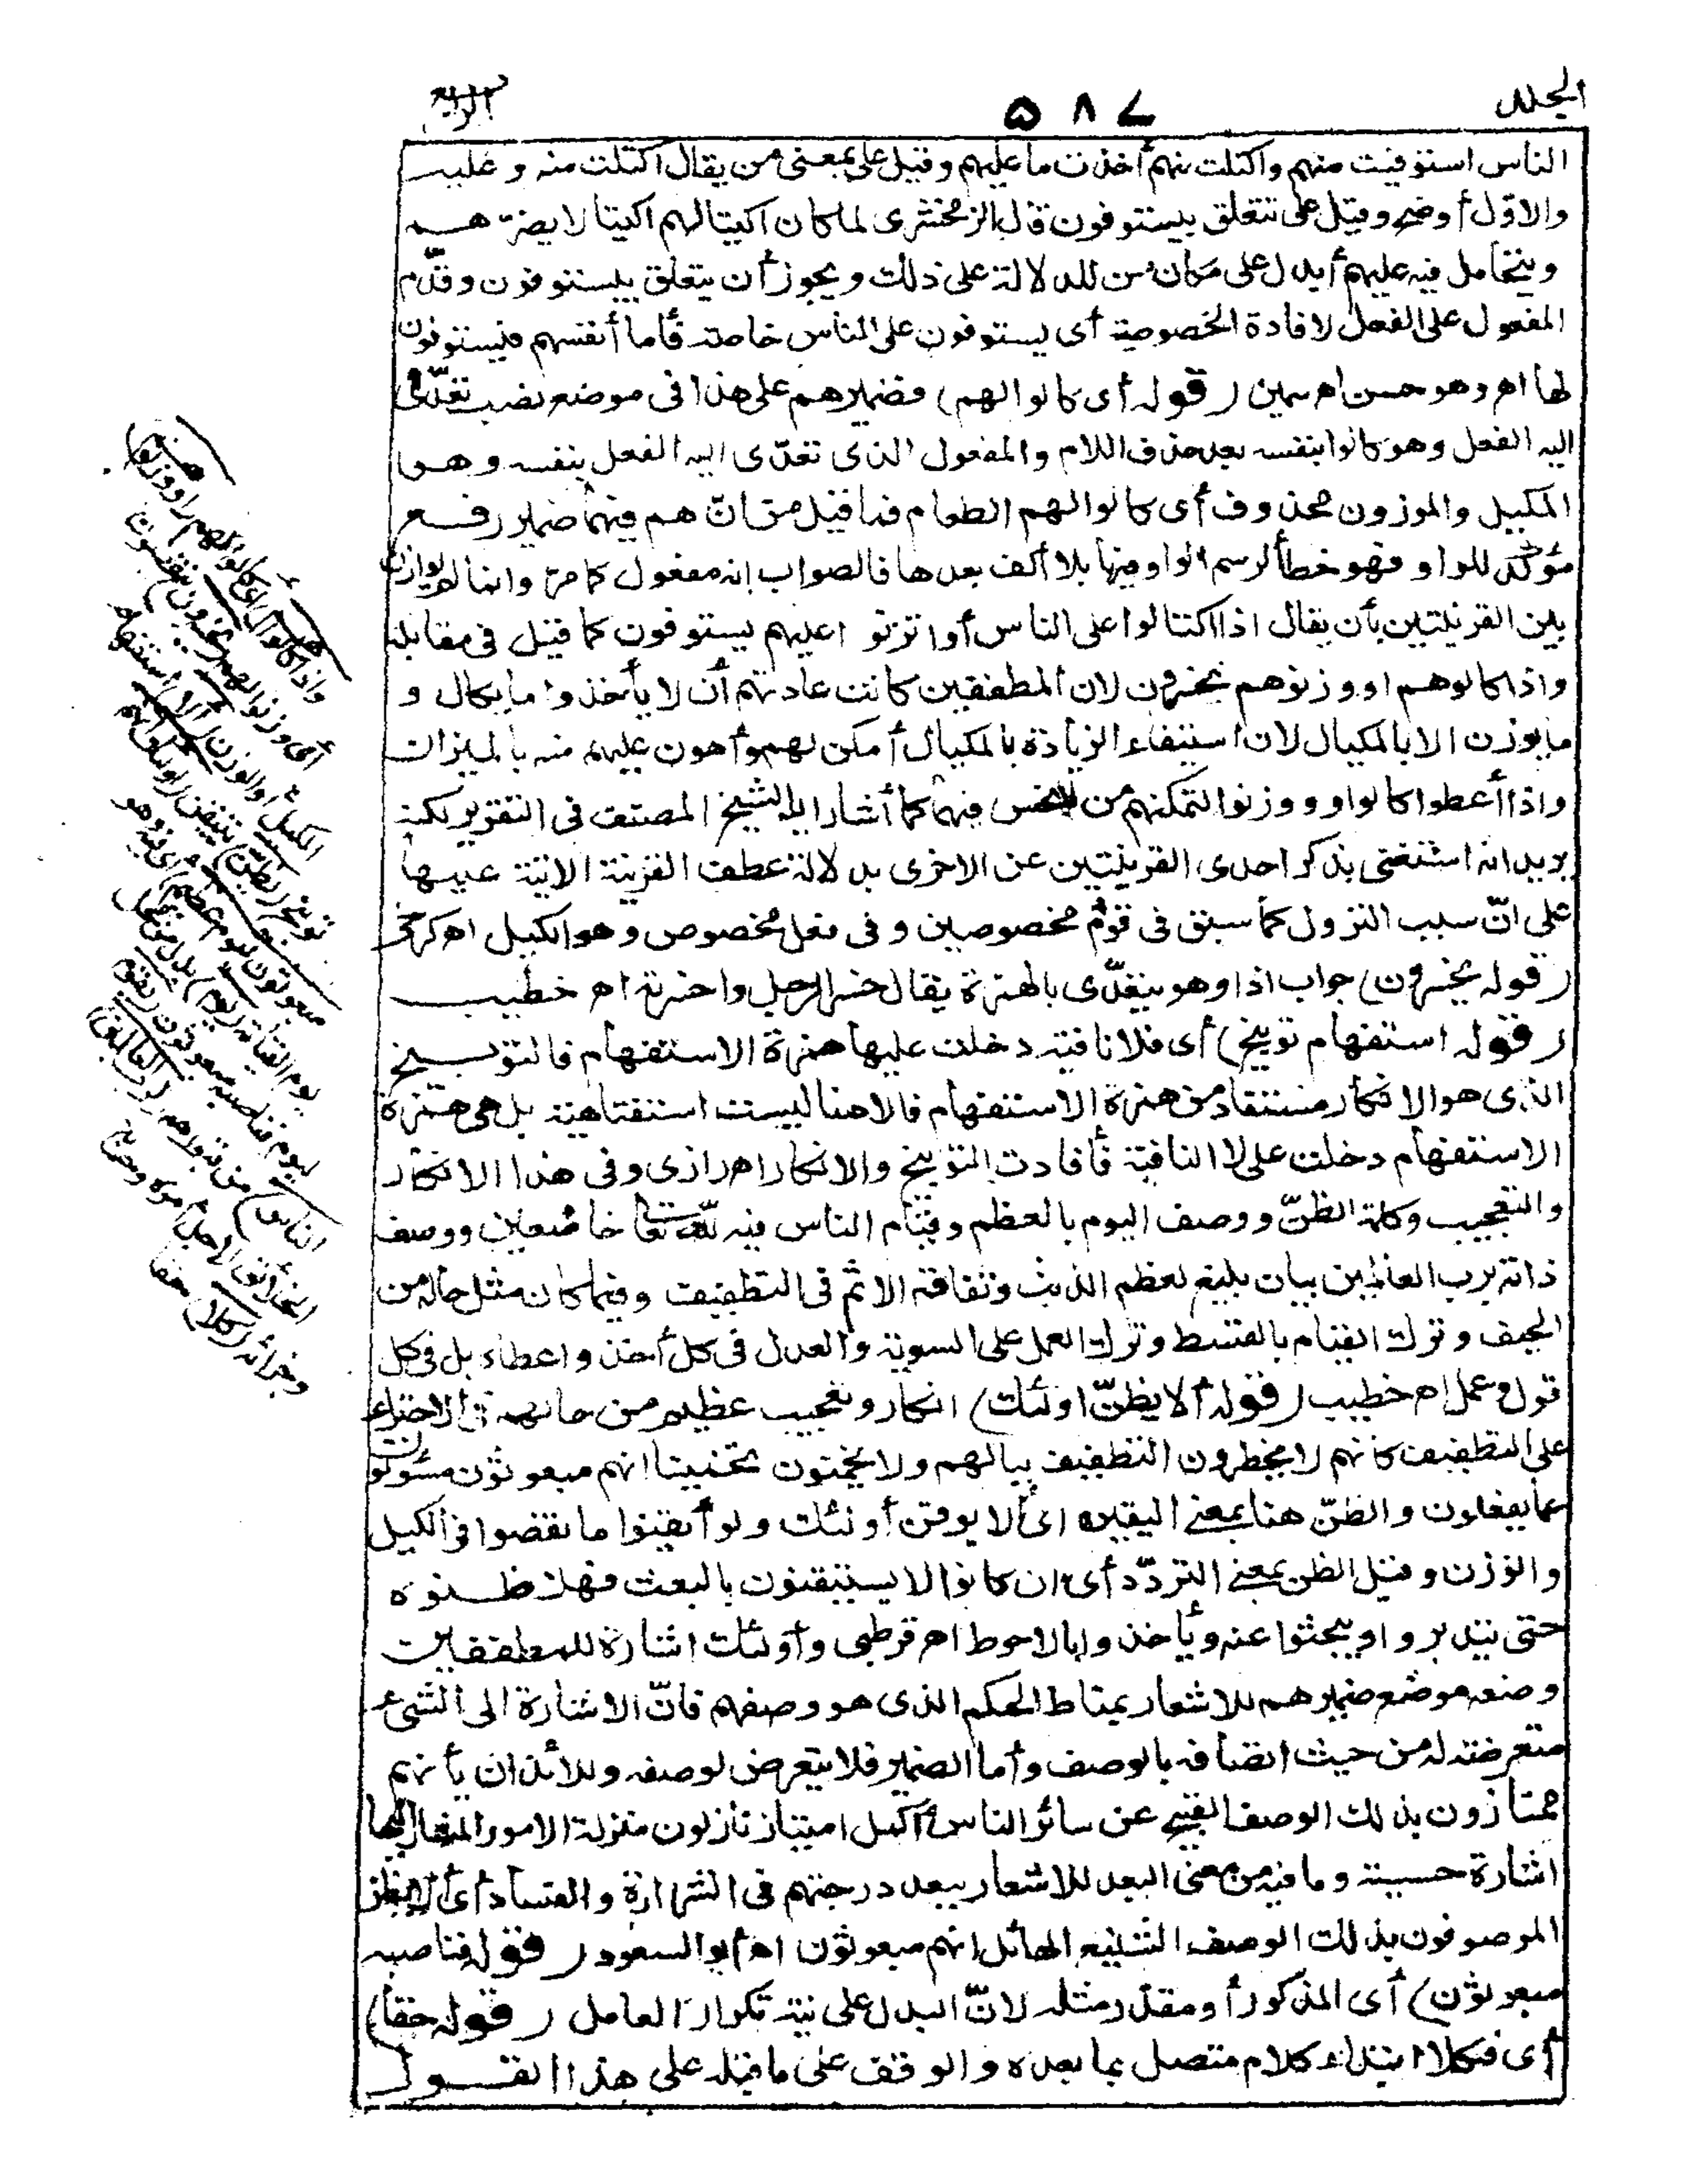 المجلد
۵۸۷
الرابع
الناس استوفيت منهم واكتلت منهم أخذت ما عليهم وقيل على بمعنى من يقال اكتلت منه وعليه
والاوّل أوضح وقيل على تتعلق بيستوفون قال الزمخشرى لما كان اكتيالهم اكتيالا يضرّهم
ويتحامل فيه عليهم أبدل على مكان من للدلالة على ذلك ويجوز أن يتعلق بيستوفون وقدّم
المفعول على الفعل لافادة الخصوصية أى يستوفون على الناس خاصة فأما أنفسهم فيستوفون
لها اهـ وهو حسن اهـ سمين (قوله أى كالوا لهم) فضمير هم على هذا فى موضع نصب تعدّى
اليه الفعل وهو كالوا بنفسه بعد حذف اللام والمفعول الذى تعدّى اليه الفعل بنفسه وهو
المكيل والموزون محذوف أى كالوا لهم الطعام فما قيل من انّ هم فيهما ضمير رفع
مؤكد للواو فهو خطأ لرسم الواو فيها بلا ألف بعدها فالصواب انه مفعول كما مرّ وانما لم يوازن
بين القرينتين بأن يقال اذا اكتالوا على الناس أو اتزنوا عليهم يستوفون كما قيل فى مقابله
واذا كالوهم او وزنوهم يخسرون لان المطففين كانت عادتهم أن لا يأخذوا ما يكال و
ما يوزن الا بالمكيال لان استيفاء الزيادة بالمكيال أمكن لهم وأهون عليهم منه بالميزان
واذا أعطوا كالوا ووزنوا لتمكنهم من البخس فيهما كما أشار اليه الشيخ المصنف فى التقرير لكنه
يريد انه استغنى بذكر احدى القرينتين عن الاخرى بدلالة عطف القرينة الاتية عليها
على انّ سبب النزول كما سبق فى قوم مخصوصين وفى فعل مخصوص وهو الكيل اهـ كرخى
(قوله يخسرون) جواب اذا وهو يتعدّى بالهمزة يقال خسر الرجل واخسرته اهـ خطيب
(قوله استفهام توبيخ) أى فلا نافية دخلت عليها همزة الاستفهام فالتوبيخ
الذى هو الانكار مستفاد من همزة الاستفهام فالا هنا ليست استفتاحية بل هى همزة
الاستفهام دخلت على لا النافية فأفادت التوبيخ والانكار اهـ رازى وفى هذا الانكار
والتعجيب وكلمة الظنّ ووصف اليوم بالعظم وقيام الناس فيه لله تعالى خاضعين ووصف
ذاته برب العالمين بيان بليغ لعظم الذنب وتفاقم الاثم فى التطفيف وفيما كان مثل حاله من
الحيف وترك القيام بالقسط وترك العمل على السوية والعدل فى كل أخذ واعطاء بل فى كل
قول وعمل اهـ خطيب (قوله ألا يظنّ اولئك) انكار وتعجيب عظيم من حالهم فى الاجتراء
على التطفيف كانهم لا يخطرون التطفيف ببالهم ولا يخمنون تخمينا انهم مبعوثون مسؤلون
عما يفعلون والظنّ هنا بمعنى اليقين اى ألا يوقن أولئك ولو أيقنوا ما نقصوا فى الكيل
والوزن وقيل الظن بمعنى التردّد أى ان كانوا لا يستيقنون بالبعث فهلا ظنوه
حتى يتدبروا ويبحثوا عنه ويأخذوا بالاحوط اهـ قرطبى وأولئك اشارة للمطففين
وضعه موضع ضميرهم للاشعار بمناط الحكم الذى هو وصفهم فانّ الاشارة الى الشىء
متعرضة له من حيث اتصافه بالوصف وأما الضمير فلا يتعرض لوصفه وللأيذان بأنهم
ممتازون بذلك الوصف القبيح عن سائر الناس أكمل امتياز نازلون منزلة الامور المشار اليها
اشارة حسية وما فيه من معنى البعد للاشعار ببعد درجتهم فى الشرارة والفساد أى ألا يظن
الموصوفون بذلك الوصف الشنيع الهائل انهم مبعوثون اهـ أبو السعود (قوله فناصبه
مبعوثون) أى المذكور أو مقدّر مثله لانّ البدل على نية تكرار العامل (قوله حقا)
أى فكلا ابتداء كلام متصل بما بعده والوقف على ما قبله على هذا القول
واذا كالوهم أى كالوا لهم (أو وزنوهم)
أى وزنوا لهم (يخسرون) ينقصون
الكيل أو الوزن (ألا) استفهام
توبيخ (يظنّ) يتيقن (أولئك أنهم
مبعوثون ليوم عظيم) أى فيه وهو
يوم القيامة (يوم) بدل من محل
ليوم فناصبه مبعوثون (يقوم
الناس) من قبورهم (لرب العالمين)
الخلائق لاجل أمره وحسابه
وجزائه (كلا) حقا